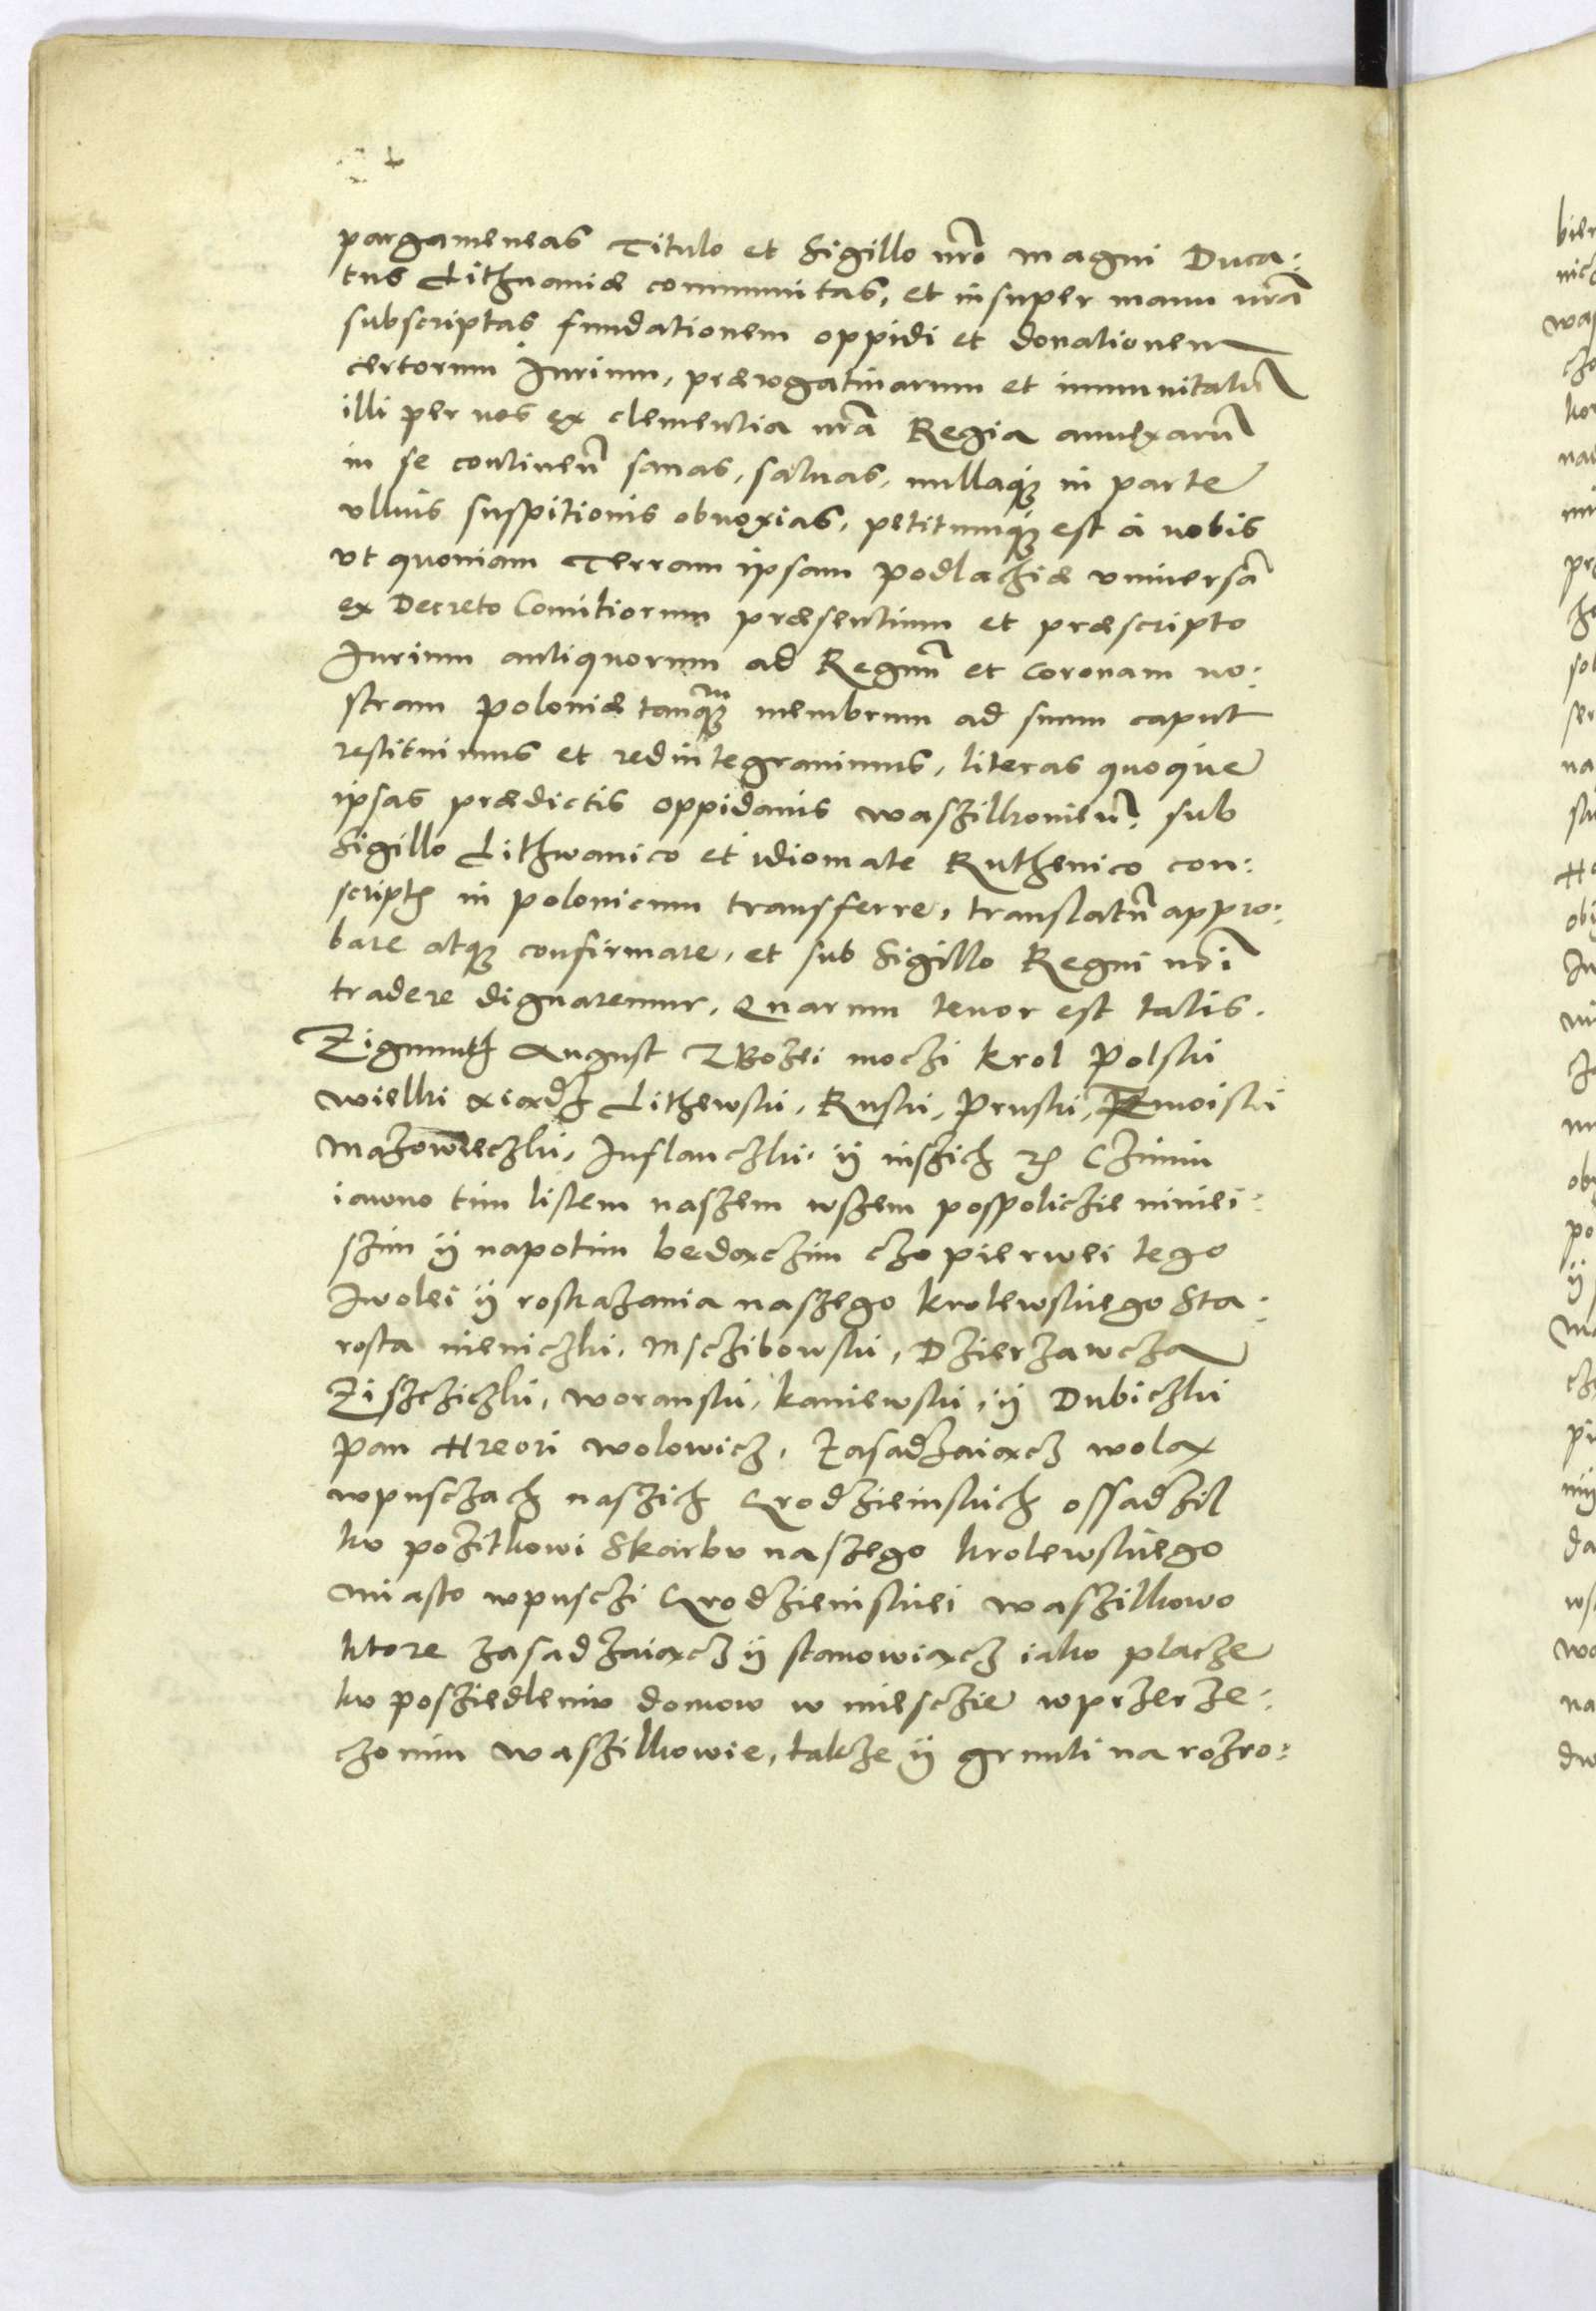 pargameneas Titulo et Sigillo nr̃o magni Duca:
tus Lithuaniæ communitas, et insuper manu nr̃a
subscriptas fundationem oppidi et donationem
certorum Jurium, prærogatiuarum et immunitatũ
illi per nos ex clementia nr̃a Regia annexarũ
in se continen̄ sanas, saluas, nullaq; in parte
vllius suspitionis obnoxias, petitumq; est à nobis
vt quoniam Terram ipsam podlachiæ vniuersã
ex Decreto Comitiorum præsentium et præscripto
Jurium antiquorum ad Regnũ et coronam no:
stram poloniæ tanq̃m membrum ad suum caput
restituimus et redintegrauimus, literas quoque
ipsas prædictis oppidanis waszilkouien̄. sub
Sigillo Lithwanico et idiomate Ruthenico con:
script̃ in polonicum transferre, translatũ appro:
bare atq; confirmare, et sub Sigillo Regni nr̃i
tradere dignaremur, Quarum tenor est talis.
Zigmunth August Z Bozei moczi krol Polski
wielki xiądz Lithewski, Ruski, Pruski, Zmoiski
Mazowieczki, Inflanczki, ÿ inszich ꝛc Czinim
iawno tim listem naszem wszem pospoliczie niniei:
szim ÿ napotim bedączim czo pierwei tego
Zwolei ÿ roskazania naszego krolewskiego Sta:
rosta mieniczki, Msczibowski, Dzierzawcza
Ziszcziczki, woranski, kaniewski, ÿ Dubiczki
pan Hreori wolowicz, Zasadzaiącz wolą
wpusczach naszich Grodzieinskich ossadzil
kv pozitkowi Skarbv naszego krolewskiego
miasto wpusczi Grodzieinskiei waszilkowo
ktore zasadzaiącz ÿ stanowiącz iako place
kv posziedleniv domow w miesczie wprzerze:
czonim waszilkowie, takze ÿ grunti na rozro: